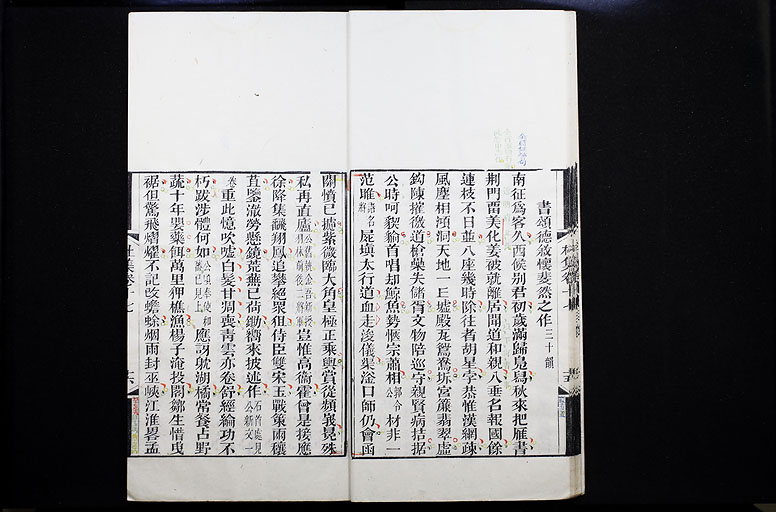 書頌德敘懷斐然之作三十韻
南征為客久西候別君初歲滿歸鳧舄秋來把雁書
荊門留美化姜被就離居聞道和親入垂名報國餘
連枝不日並八座幾時除往者胡星孛恭惟漢網疎
風塵相澒洞天地一丘墟殿瓦鴛鴦坼宮簾翡翠虛
鉤陳摧徼道槍欃失儲胥文物陪巡守親賢病拮据
公時呵猰貐首唱却鯨魚勢愜宗蕭相郭令公材非一
范睢諸名將屍填太行道血走浚儀渠滏口師仍會函
關憤已攄紫微臨大角皇極正乘輿賞從頻峩冕殊
私再直廬豈惟高衛霍曾是接應
徐降集翻翔鳳追攀絕眾狙侍臣雙宋玉戰策兩穰
苴鑒澈勞懸鏡荒蕪已荷鋤嚮來披述作
重此憶吹噓白髮甘凋喪青雲亦卷舒經綸功不
朽跋涉體何如應訝躭湖橘常餐占野
蔬十年嬰藥餌萬里狎樵漁楊子淹投閣鄒生惜曳
裾但驚飛熠燿不記改蟾蜍烟雨封巫峽江淮畧孟
杜集卷十七